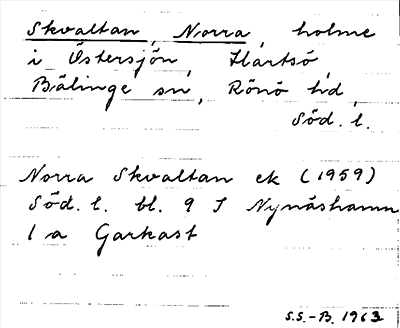 Skvaltan, Norra, holme
i Östersjön, Hartsö,
Bälinge sn, Rönö hd,
Söd. l.
Norra Skvaltan ek (1959)
Söd. l. bl. 9 J Nynäshamn
1 a Garkast
S.S.-B. 1963